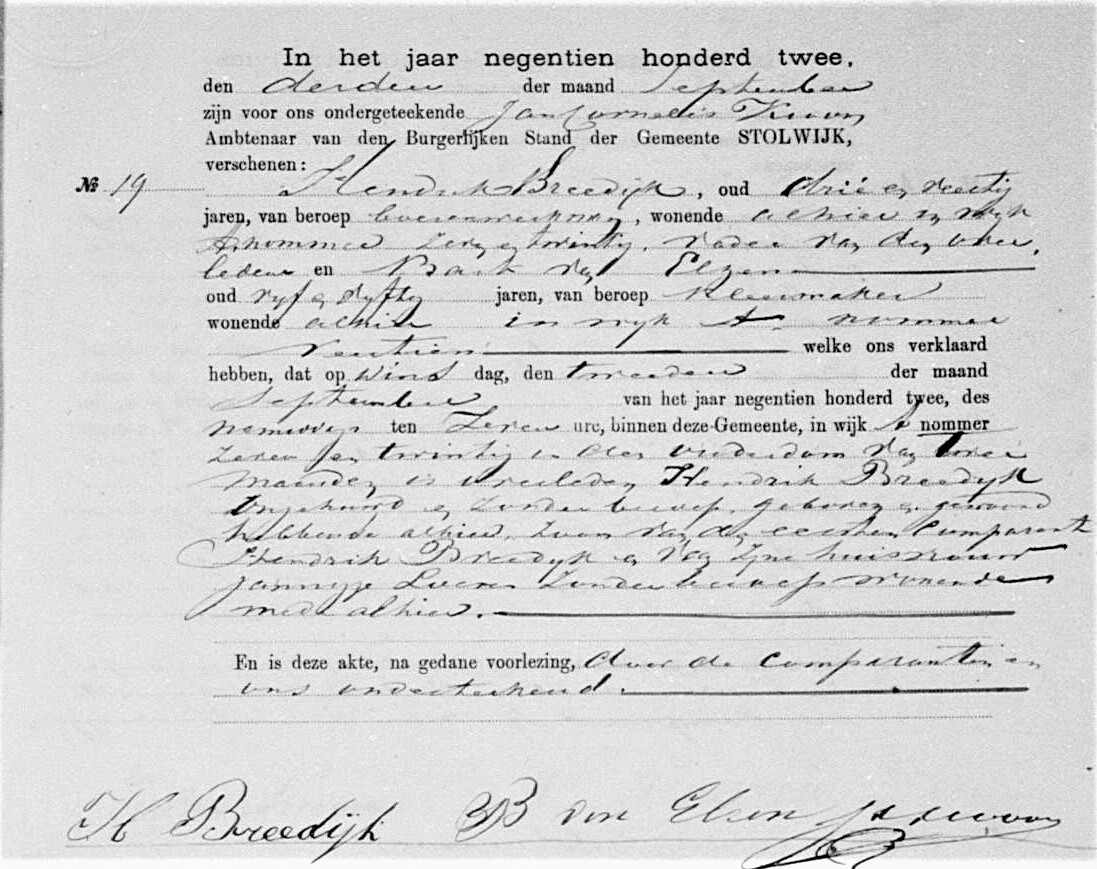 In het jaar negentien honderd twee,
den derden der maand September
zijn voor ons ondergeteekende Jan Cornelis
Ambtenaar van den Burgerlijken Stand der Gemeente STOLWIJK,
verschenen:
№ 19 Hendrik Breedijk, oud drie en veertig
jaren, van beroep , wonende alhier in wijk
A. nommer zeven en twintig, vader van den over,
ledene en Bart van Elzen
oud vijf en vijftig jaren, van beroep kleermaker
wonende alhier in wijk A. nommer
veertien welke ons verklaard
hebben, dat op dins dag, den tweeden der maand
September van het jaar negentien honderd twee, des
namiddags ten zeven ure, binnen deze Gemeente, in wijk A nommer
zeven en twintig in den ouderdom van twee
maanden is overleden Hendrik Breedijk
ongehuwd en zonder beroep, geboren en gewoond
hebbende alhier, zoon van den eersten Comparant
Hendrik Breedijk en van zijne huisvrouw
Jannigje zonder beroep wonende
mede alhier.
En is deze akte, na gedane voorlezing, door de comparanten en
ons onderteekend.
H Breedijk B van Elsen